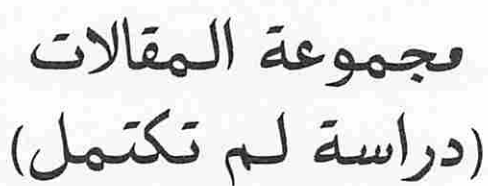 مجموعة المقالات
(دراسة لم تكتمل)